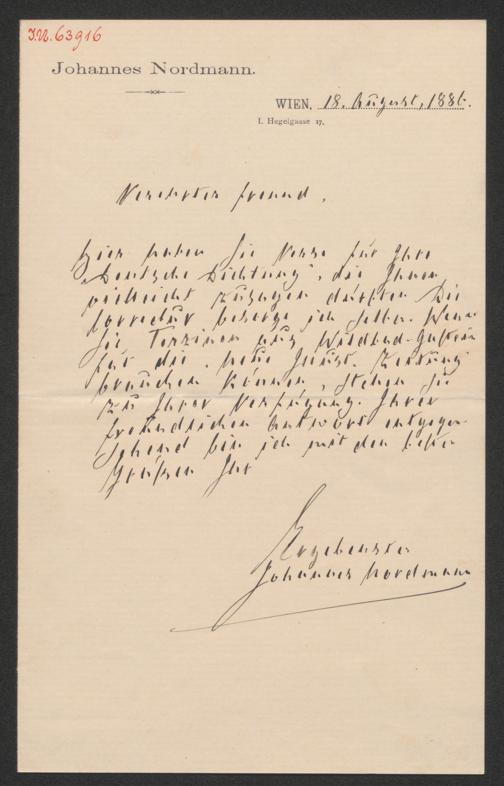 I.N. 63916
Johannes Nordmann.
WIEN, 18. August, 1886.
I. Hegelgasse 17.
Verehrter Freund,
Hier haben Sie Verse für Ihre
„Deutsche Dichtung", die Ihnen
vielleicht zusagen dürften. Die
Correctur besorge ich selber. Wenn
Sie Terzinen aus Wildbad-Gastein
für die „Neue Illust. Zeitung"
brauchen können, stehen sie
zu Ihrer Verfügung. Ihrer
freundlichen Antwort entgegen-
sehend bin ich mit den besten
Grüßen Ihr
Ergebenster
Johannes Nordmann